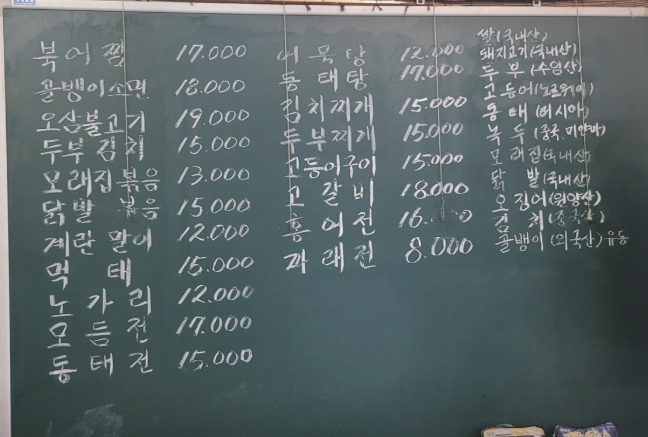 북어찜 17.000
골뱅이소면 18.000
오삼불고기 19.000
두부김치 15.000
모래집볶음 13.000
닭발 볶음 15.000
계란말이 12.000
먹태 15.000
노가리 12.000
모듬전 17.000
동태전 15.000
어묵탕 12.000
동태탕 17.000
김치찌개 15.000
두부찌게 15.000
고등어구이 15.000
고갈비 18.000
홍어전 16.000
파래전 8.000
쌀(국내산)
돼지고기(국내산)
두부(수입산)
고등어(노르웨이)
동태(러시아)
녹두(중국.미얀마)
모래집(국내산)
닭발(국내산)
오징어(원양산)
김치(중국산)
골뱅이(외국산)유동